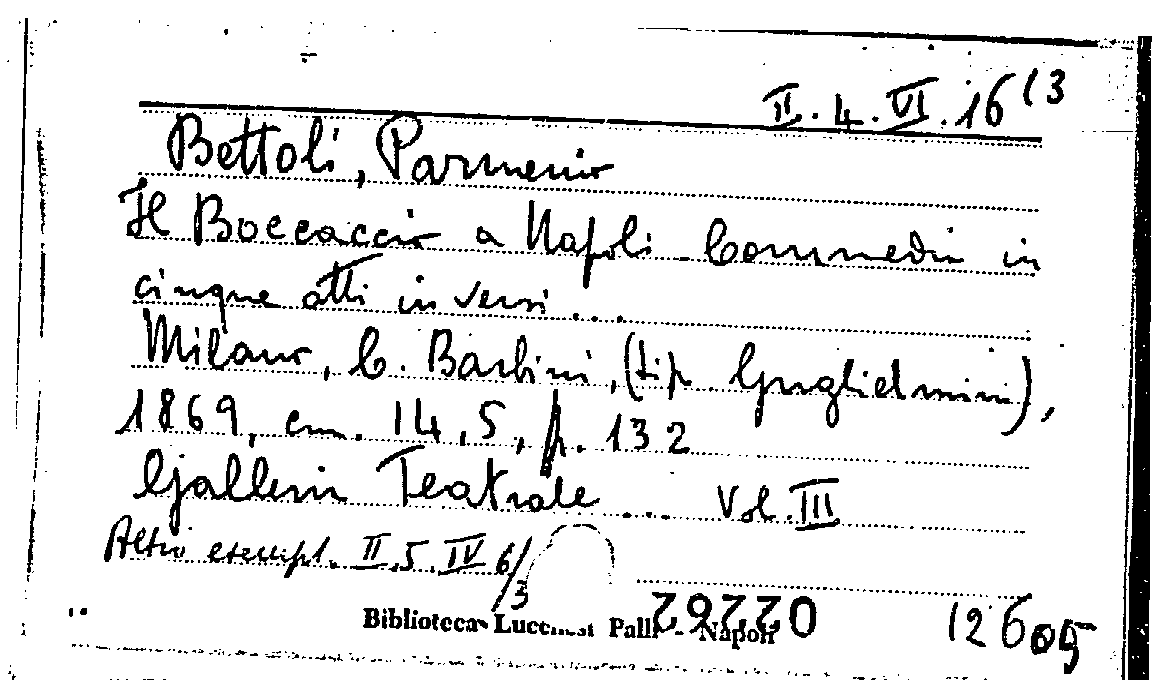 II. 4. VI. 16 (3
Bettoli, Parmenio
Il Boccaccio a Napoli. Commedia in
cinque atti in versi ...
Milano, C. Barbini, (tip. Guglielmini),
1869, cm. 14,5, p. 132
Galleria Teatrale ... Vol. III
Altro esempl. II.5.IV 6/3
Biblioteca Lucchesi Palli - Napoli
02262
12605